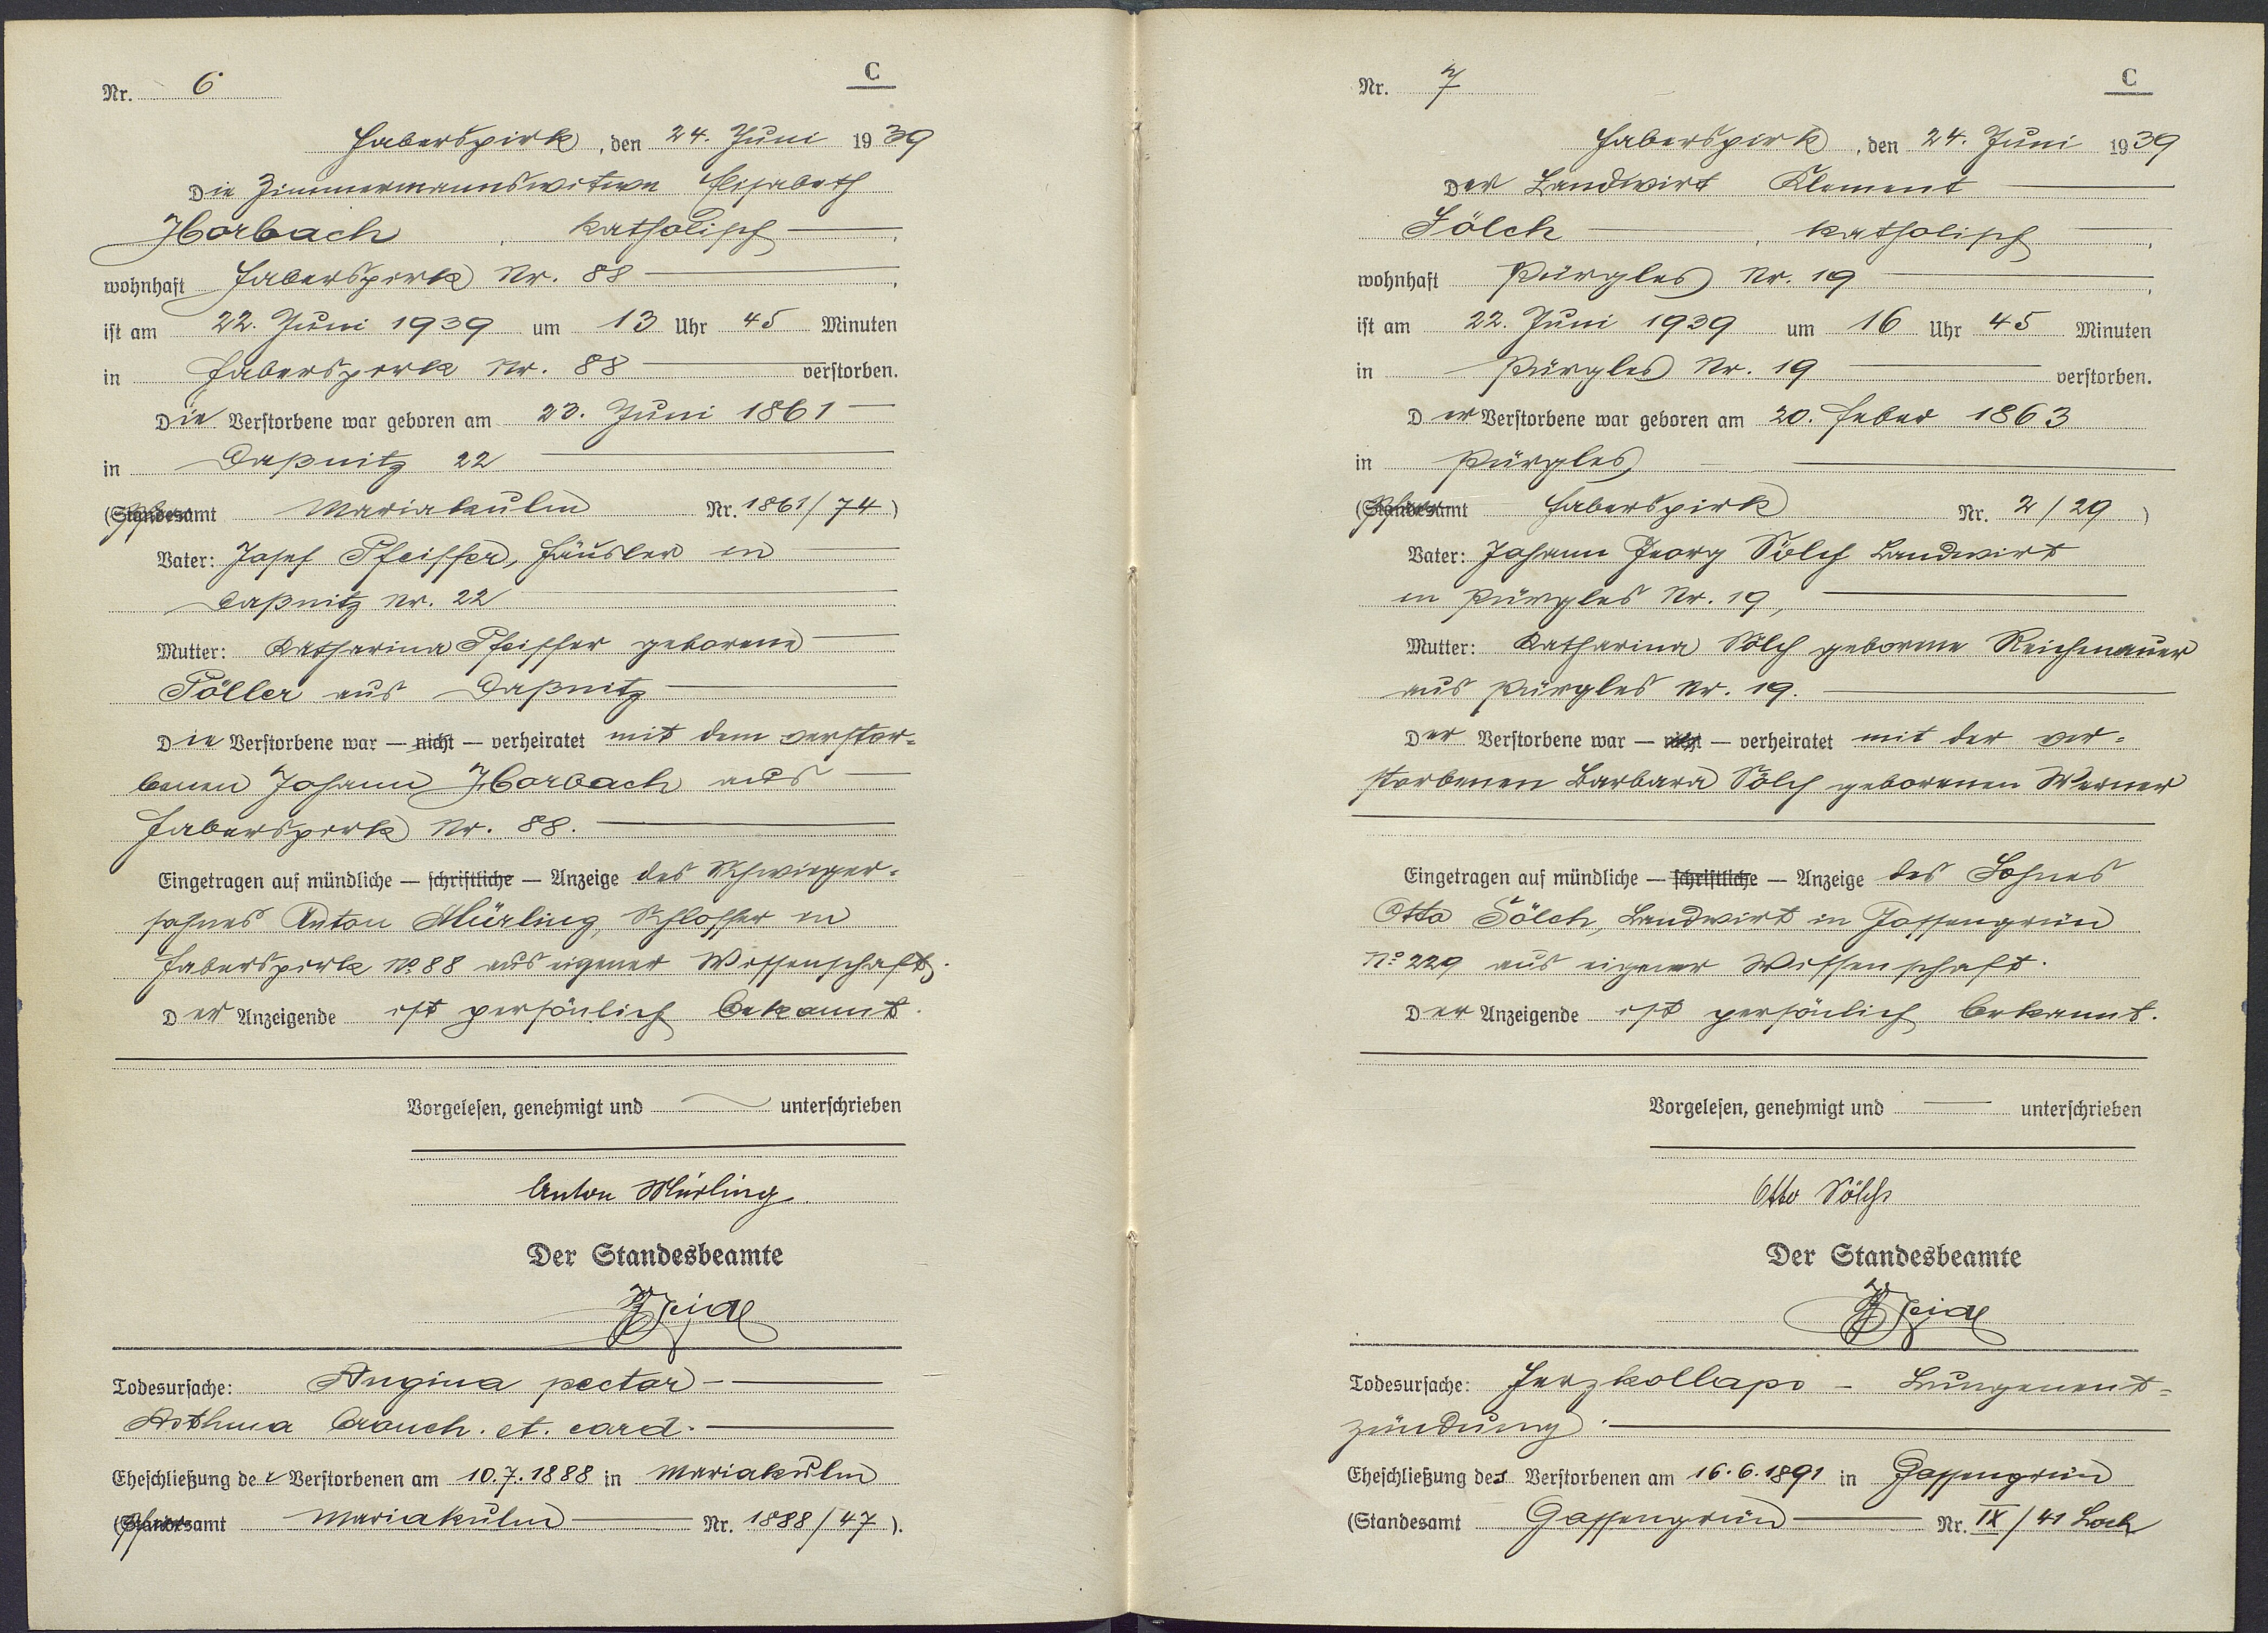 Nr. 6
C
Haberspirk, den 24. Juni 1939
Die Zimmermannswitwe Elisabeth
Horbach, katholisch,
wohnhaft Haberspirk Nr. 88,
ist am 22. Juni 1939 um 13 Uhr 45 Minuten
in Haberspirk Nr. 88 verstorben.
Die Verstorbene war geboren am 23. Juni 1861
in Daßnitz 22
(Pfarramt Mariakulm Nr. 1861/74)
Vater: Josef Pfeiffer, Häusler in
Daßnitz Nr. 22
Mutter: Katharina Pfeiffer geborene
Pöller aus Daßnitz
Die Verstorbene war — nicht — verheiratet mit dem verstor=
benen Johann Horbach aus
Haberspirk Nr. 88.
Eingetragen auf mündliche — schriftliche — Anzeige des Schwieger=
sohnes Anton Mürling, Schlosser in
Haberspirk No 88 aus eigener Wissenschaft.
Der Anzeigende ist persönlich bekannt.
Vorgelesen, genehmigt und unterschrieben
Anton Mürling
Der Standesbeamte
Todesursache: Angina pector
Asthma bronch. et. card.
Eheschließung der Verstorbenen am 10.7.1888 in Mariakulm
(Pfarramt Mariakulm Nr. 1888/47).
Nr. 7
C
Haberspirk, den 24. Juni 1939
Der Landwirt Klement
Sölch, katholisch,
wohnhaft Pürgles Nr. 19,
ist am 22. Juni 1939 um 16 Uhr 45 Minuten
in Pürgles Nr. 19 verstorben.
Der Verstorbene war geboren am 20. Feber 1863
in Pürgles
(Pfarramt Haberspirk Nr. 2/29)
Vater: Johann Georg Sölch Landwirt
in Pürgles Nr. 19,
Mutter: Katharina Sölch geborene Reichenauer
aus Pürgles Nr. 19.
Der Verstorbene war — nicht — verheiratet mit der ver=
storbenen Barbara Sölch geborenen Werner
Eingetragen auf mündliche — schriftliche — Anzeige des Sohnes
Otto Sölch, Landwirt in Gossengrün
No 229 aus eigener Wissenschaft.
Der Anzeigende ist persönlich bekannt.
Vorgelesen, genehmigt und unterschrieben
Otto Sölch
Der Standesbeamte
Todesursache: Herzkollaps - Lungenent=
zündung.
Eheschließung des Verstorbenen am 16.6.1891 in Gossengrün
(Standesamt Gossengrün Nr. IX/41 Loch